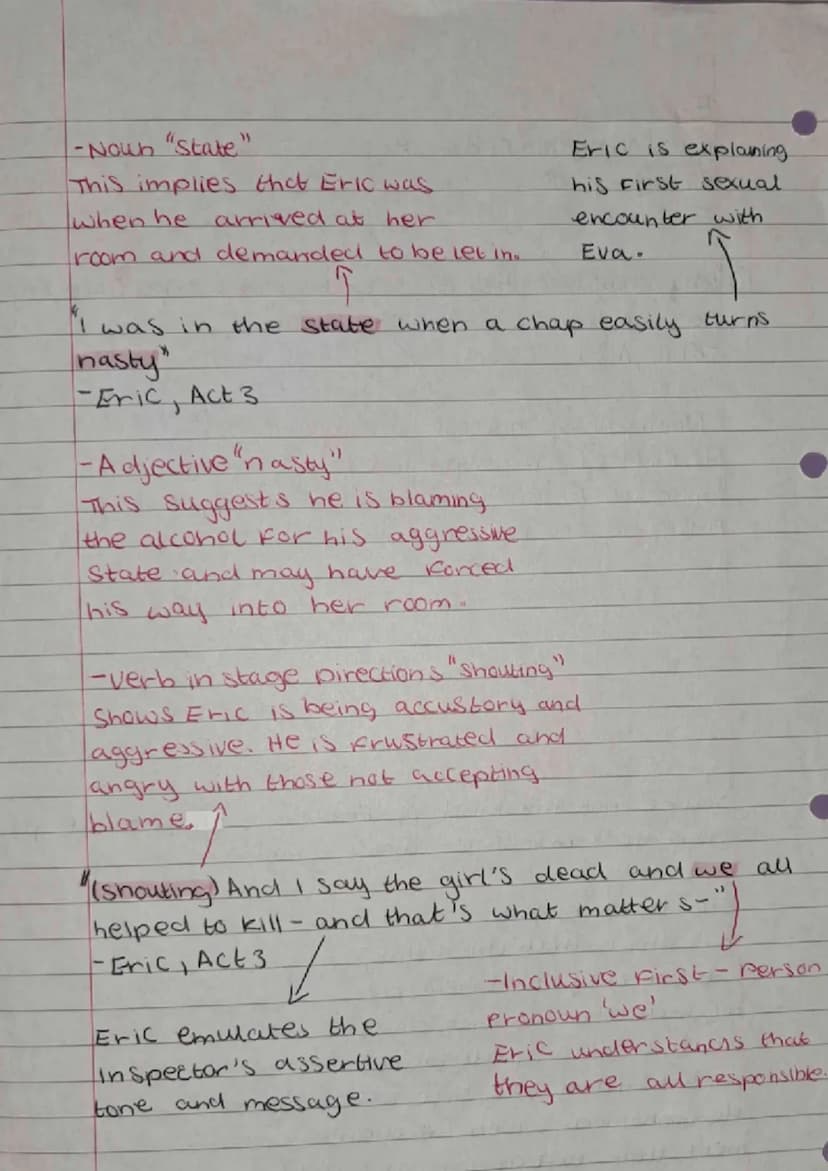 -Noun "State"
This implies that Eric was
when he arrived at her
room and demanded to be let in.
Eric is explaining
his first sexual
encounter with
Eva.
"I was in the state when a chap easily turns
nasty"
-Eric, Act 3
-Adjective "nasty"
This suggests he is blaming
the alcohol for his aggressive
State and may have forced
his way into her room.
-verb in stage Directions "shouting"
Shows Eric is being accustory and
aggressive. He is frustrated and
angry with those not accepting
blame.
"(shouting) And I say the girl's dead and we all
helped to kill - and that's what matters-"
-Eric, Act 3
Eric emulates the
inspector's assertive
tone and message.
-Inclusive First-Person
pronoun 'we'
Eric understands that
they are all responsible.